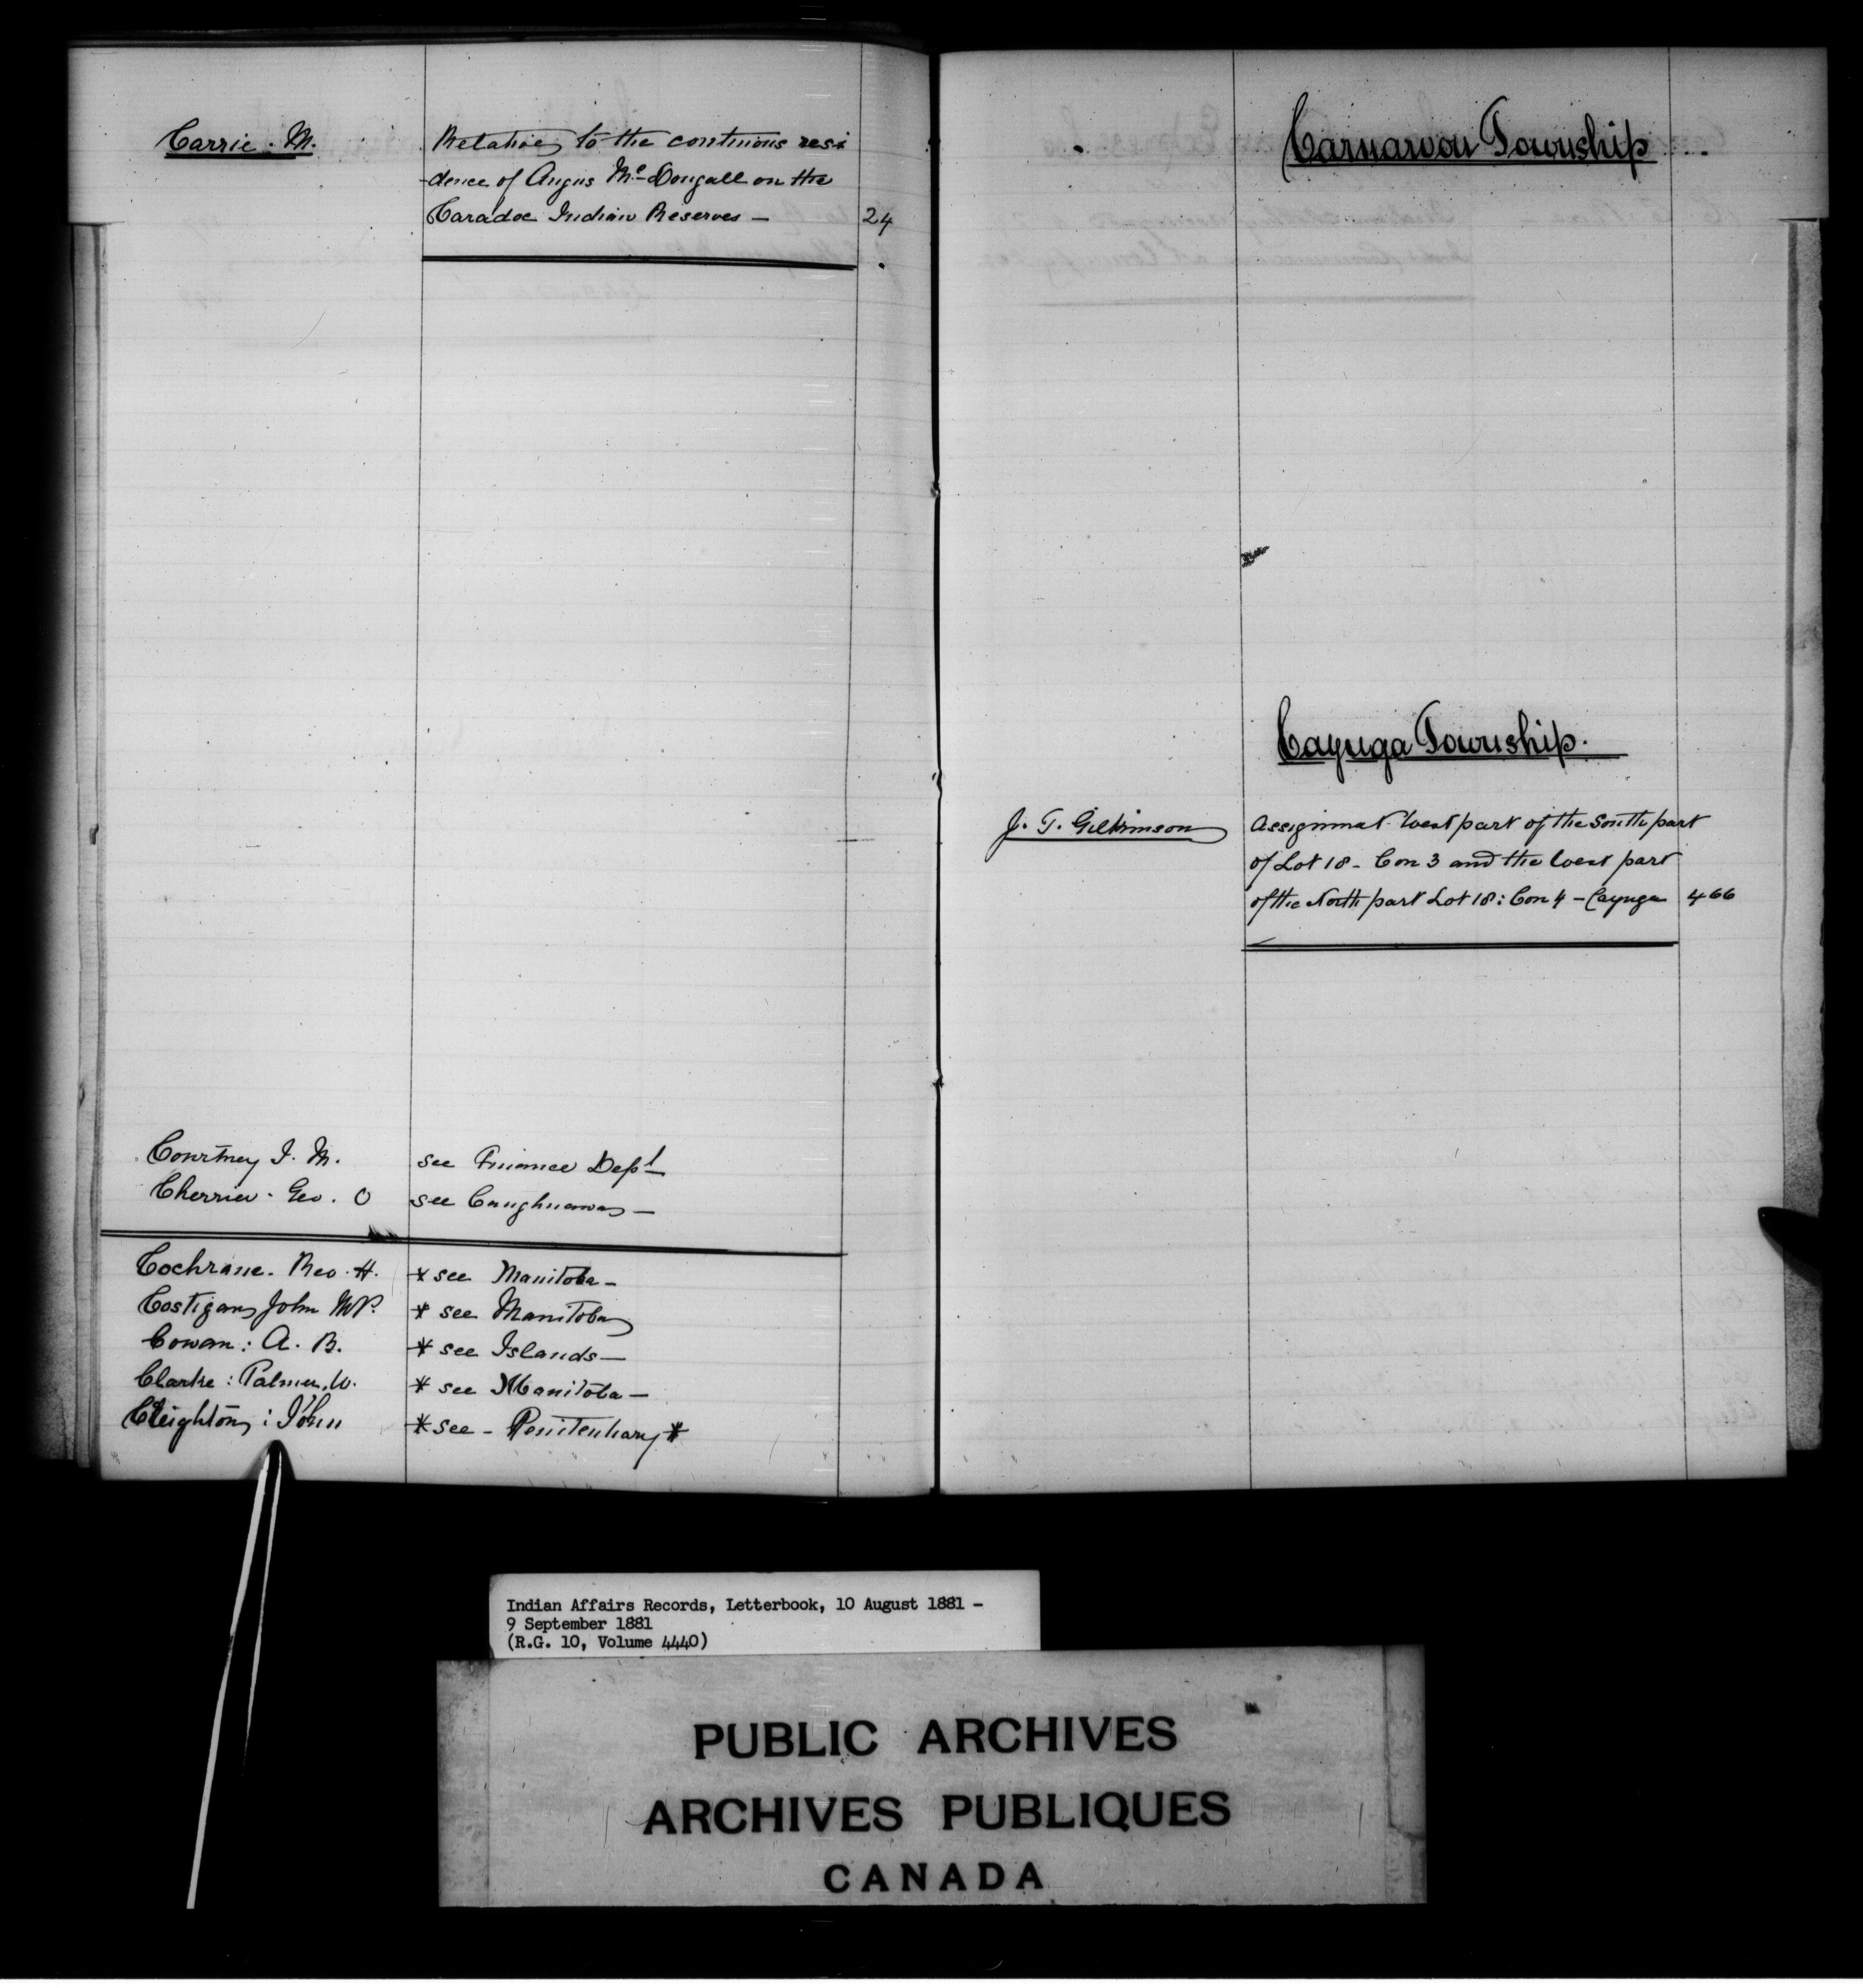 Carrie. M.
Relative to the continous resi
-dence of Angus Mc Dougall on the
Caradoc Indian Reserves — 24
Courtney J. M. see Finance Dept
Cherrier. Geo. O see Caughnawa —
Cochrane. Rev. H. * see Manitoba —
Costigan John MP. * see Manitoba
Cowan: A. B. * see Islands —
Clarke: Palmer. W. * see Manitoba —
Creighton: John * see - Penitentiary *
Carnarvon Township
Cayuga Township.
J. T. Gilkinson
Assignmat West part of the South part
of Lot 18 - Con 3 and the West part
of the North part Lot 18: Con 4 — Cayuga 466
Indian Affairs Records, Letterbook, 10 August 1881 -
9 September 1881
(R.G. 10, Volume 4440)
PUBLIC ARCHIVES
ARCHIVES PUBLIQUES
CANADA